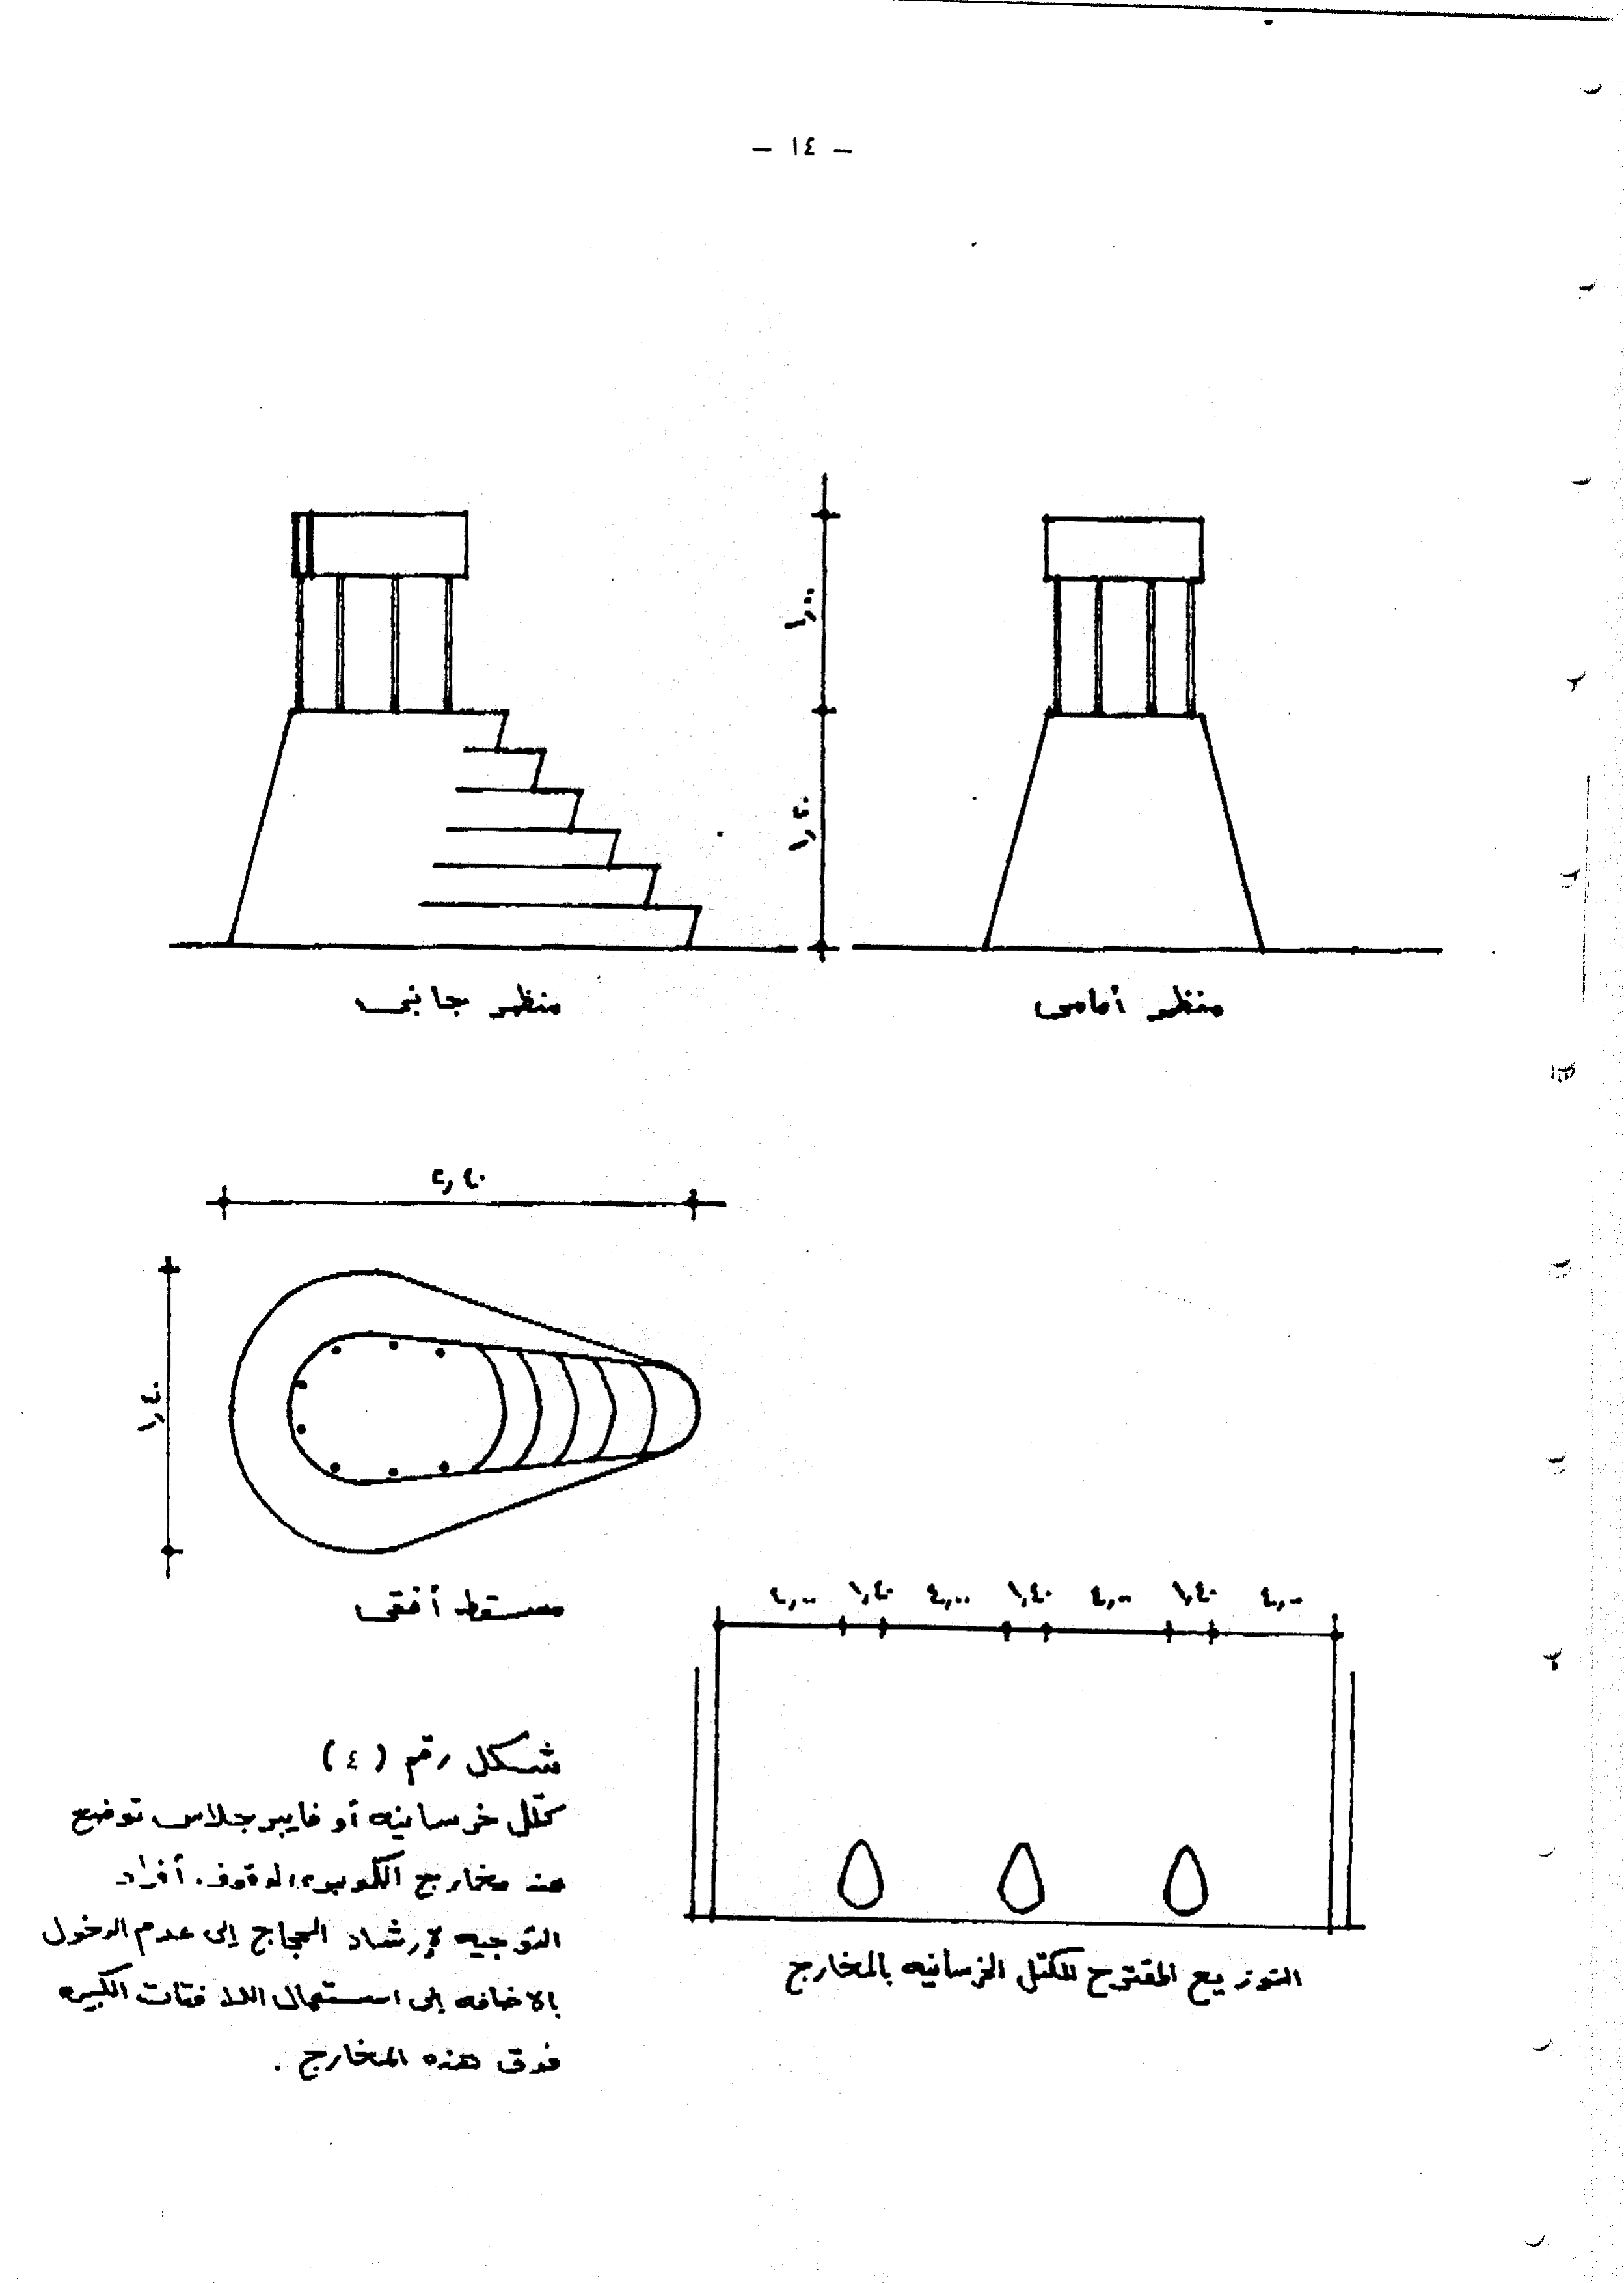 - ١٤ -
١,٠٠
١,٢٠
منظر أمامى
منظر جانبى
٢,٤٠
١,٤٠
مسقط أفقى
٤,٠٠ ١,٤٠ ٤,٠٠ ١,٤٠ ٤,٠٠ ١,٤٠ ٤,٠٠
التوزيع المقترح للكتل الخرسانيه بالمخارج
شكل رقم ( ٤ )
كتل خرسانيه أو فايبر جلاس توضع
عند مخارج الكوبرى لوقوف أفراد
التوجيه لإرشاد الحجاج إلى عدم الدخول
بالاضافه إلى استعمال اللافتات الكبيره
فوق هذه المخارج .